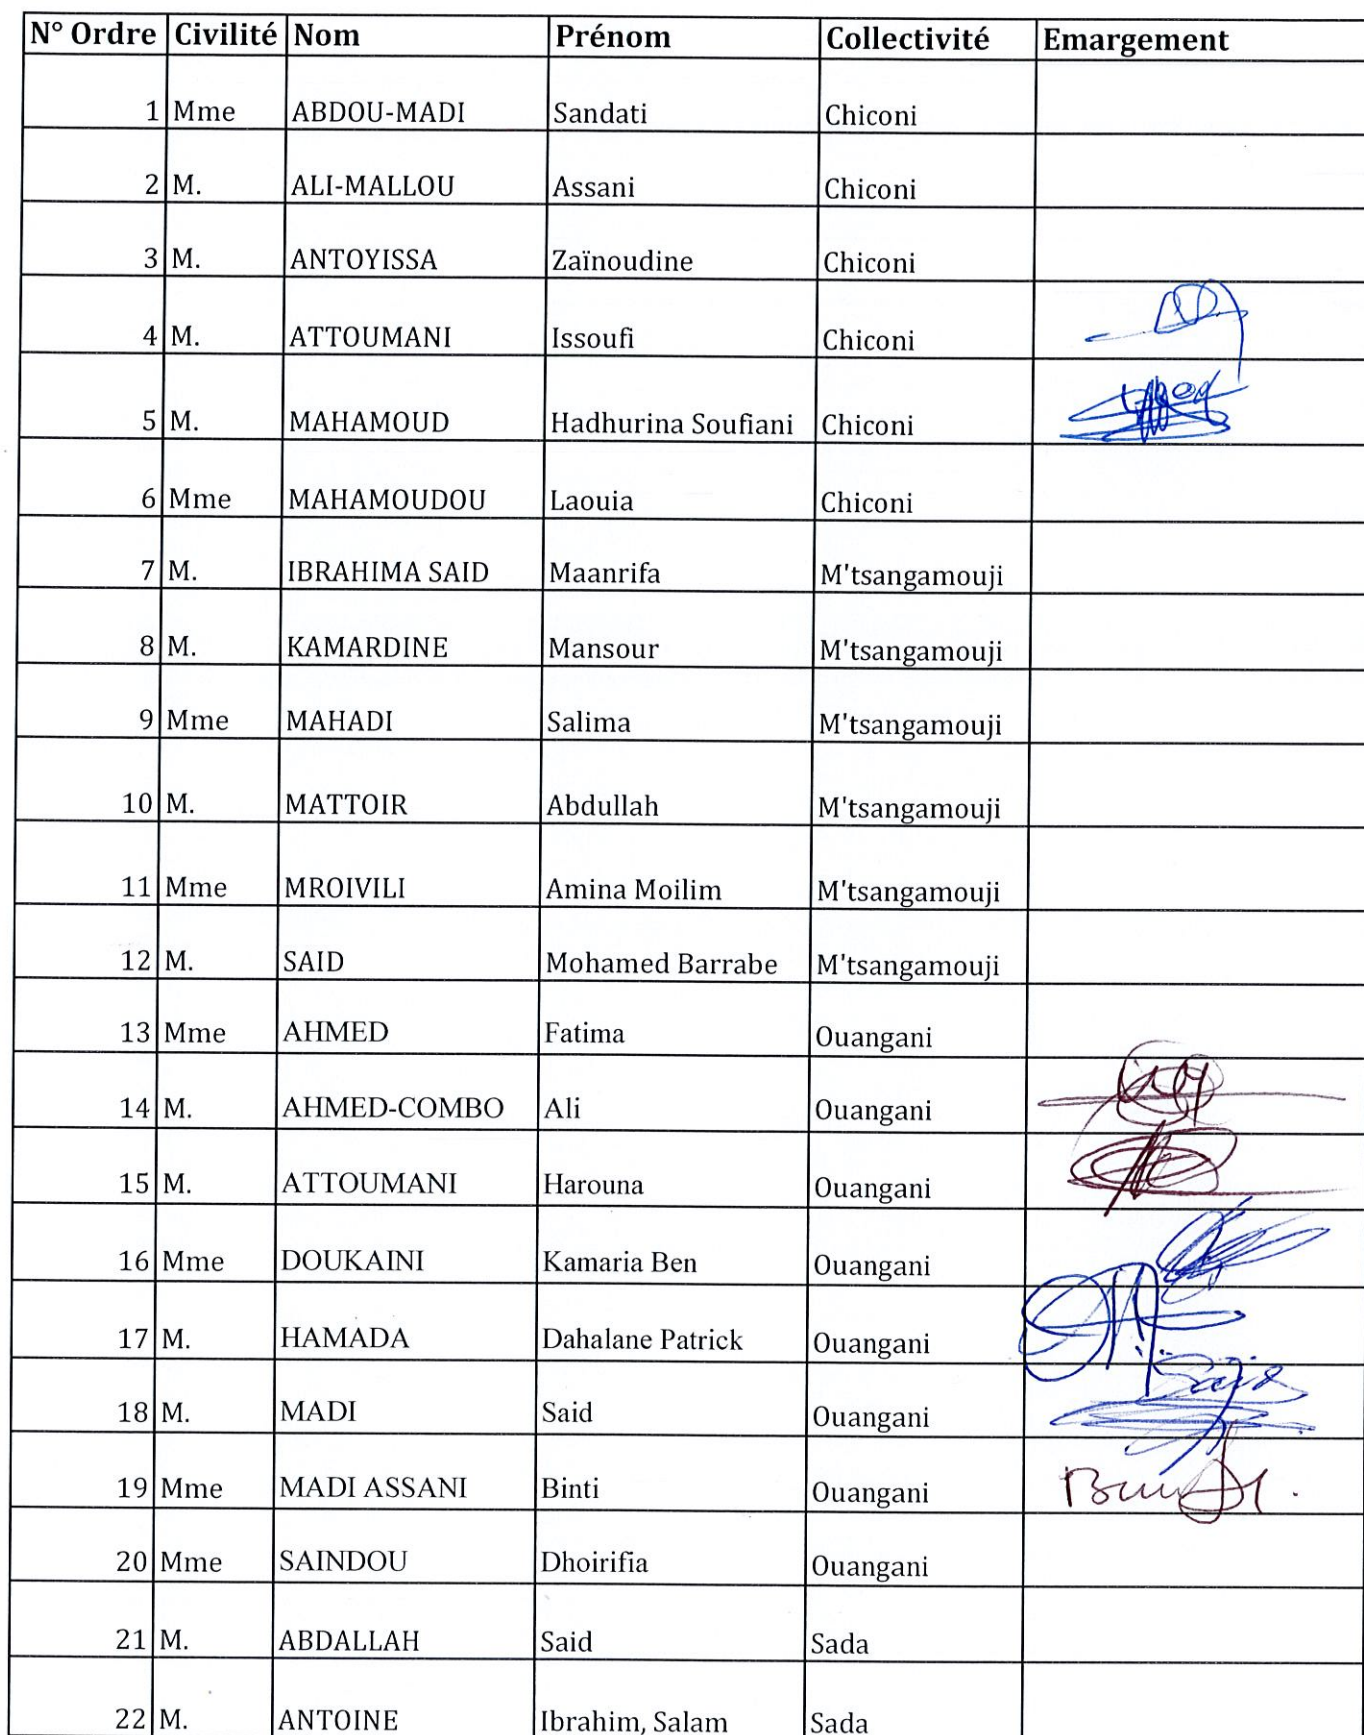 N° Ordre Civilité Nom Prénom Collectivité Emargement
1 Mme ABDOU-MADI Sandati Chiconi
2 M. ALI-MALLOU Assani Chiconi
3 M. ANTOYISSA Zaïnoudine Chiconi
4 M. ATTOUMANI Issoufi Chiconi
5 M. MAHAMOUD Hadhurina Soufiani Chiconi
6 Mme MAHAMOUDOU Laouia Chiconi
7 M. IBRAHIMA SAID Maanrifa M'tsangamouji
8 M. KAMARDINE Mansour M'tsangamouji
9 Mme MAHADI Salima M'tsangamouji
10 M. MATTOIR Abdullah M'tsangamouji
11 Mme MROIVILI Amina Moilim M'tsangamouji
12 M. SAID Mohamed Barrabe M'tsangamouji
13 Mme AHMED Fatima Ouangani
14 M. AHMED-COMBO Ali Ouangani
15 M. ATTOUMANI Harouna Ouangani
16 Mme DOUKAINI Kamaria Ben Ouangani
17 M. HAMADA Dahalane Patrick Ouangani
18 M. MADI Said Ouangani
19 Mme MADI ASSANI Binti Ouangani
20 Mme SAINDOU Dhoirifia Ouangani
21 M. ABDALLAH Said Sada
22 M. ANTOINE Ibrahim, Salam Sada